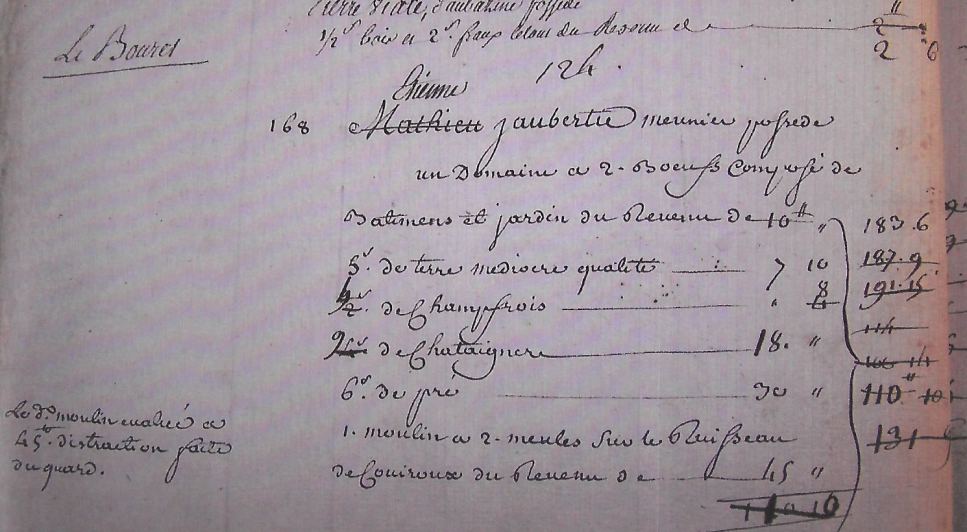 Pierre Viale, d'aubarine possede "
1/2 s. bois et 2 s. paux du Revenu de 2
2 6
Le Bouret
124.
Etienne
168 Mathieu jaubertie meunier possede
un Domaine a 2. Boeufs Composé de
Batimens et jardin du Revenu de 10 " " 183.6
5 s. de terre mediocre qualité 7 10 187.9
4 s. de Champfrois " 8 191.15
114
2 s. de Chataignere 18. "
6 s. de pré 30 " 110 "
1. moulin a 2. meules Sur le Ruisseau 131
de Couiroux du Revenu de 45 "
110 10
Le d. moulin evalué a
45 distraction faite
du quard.